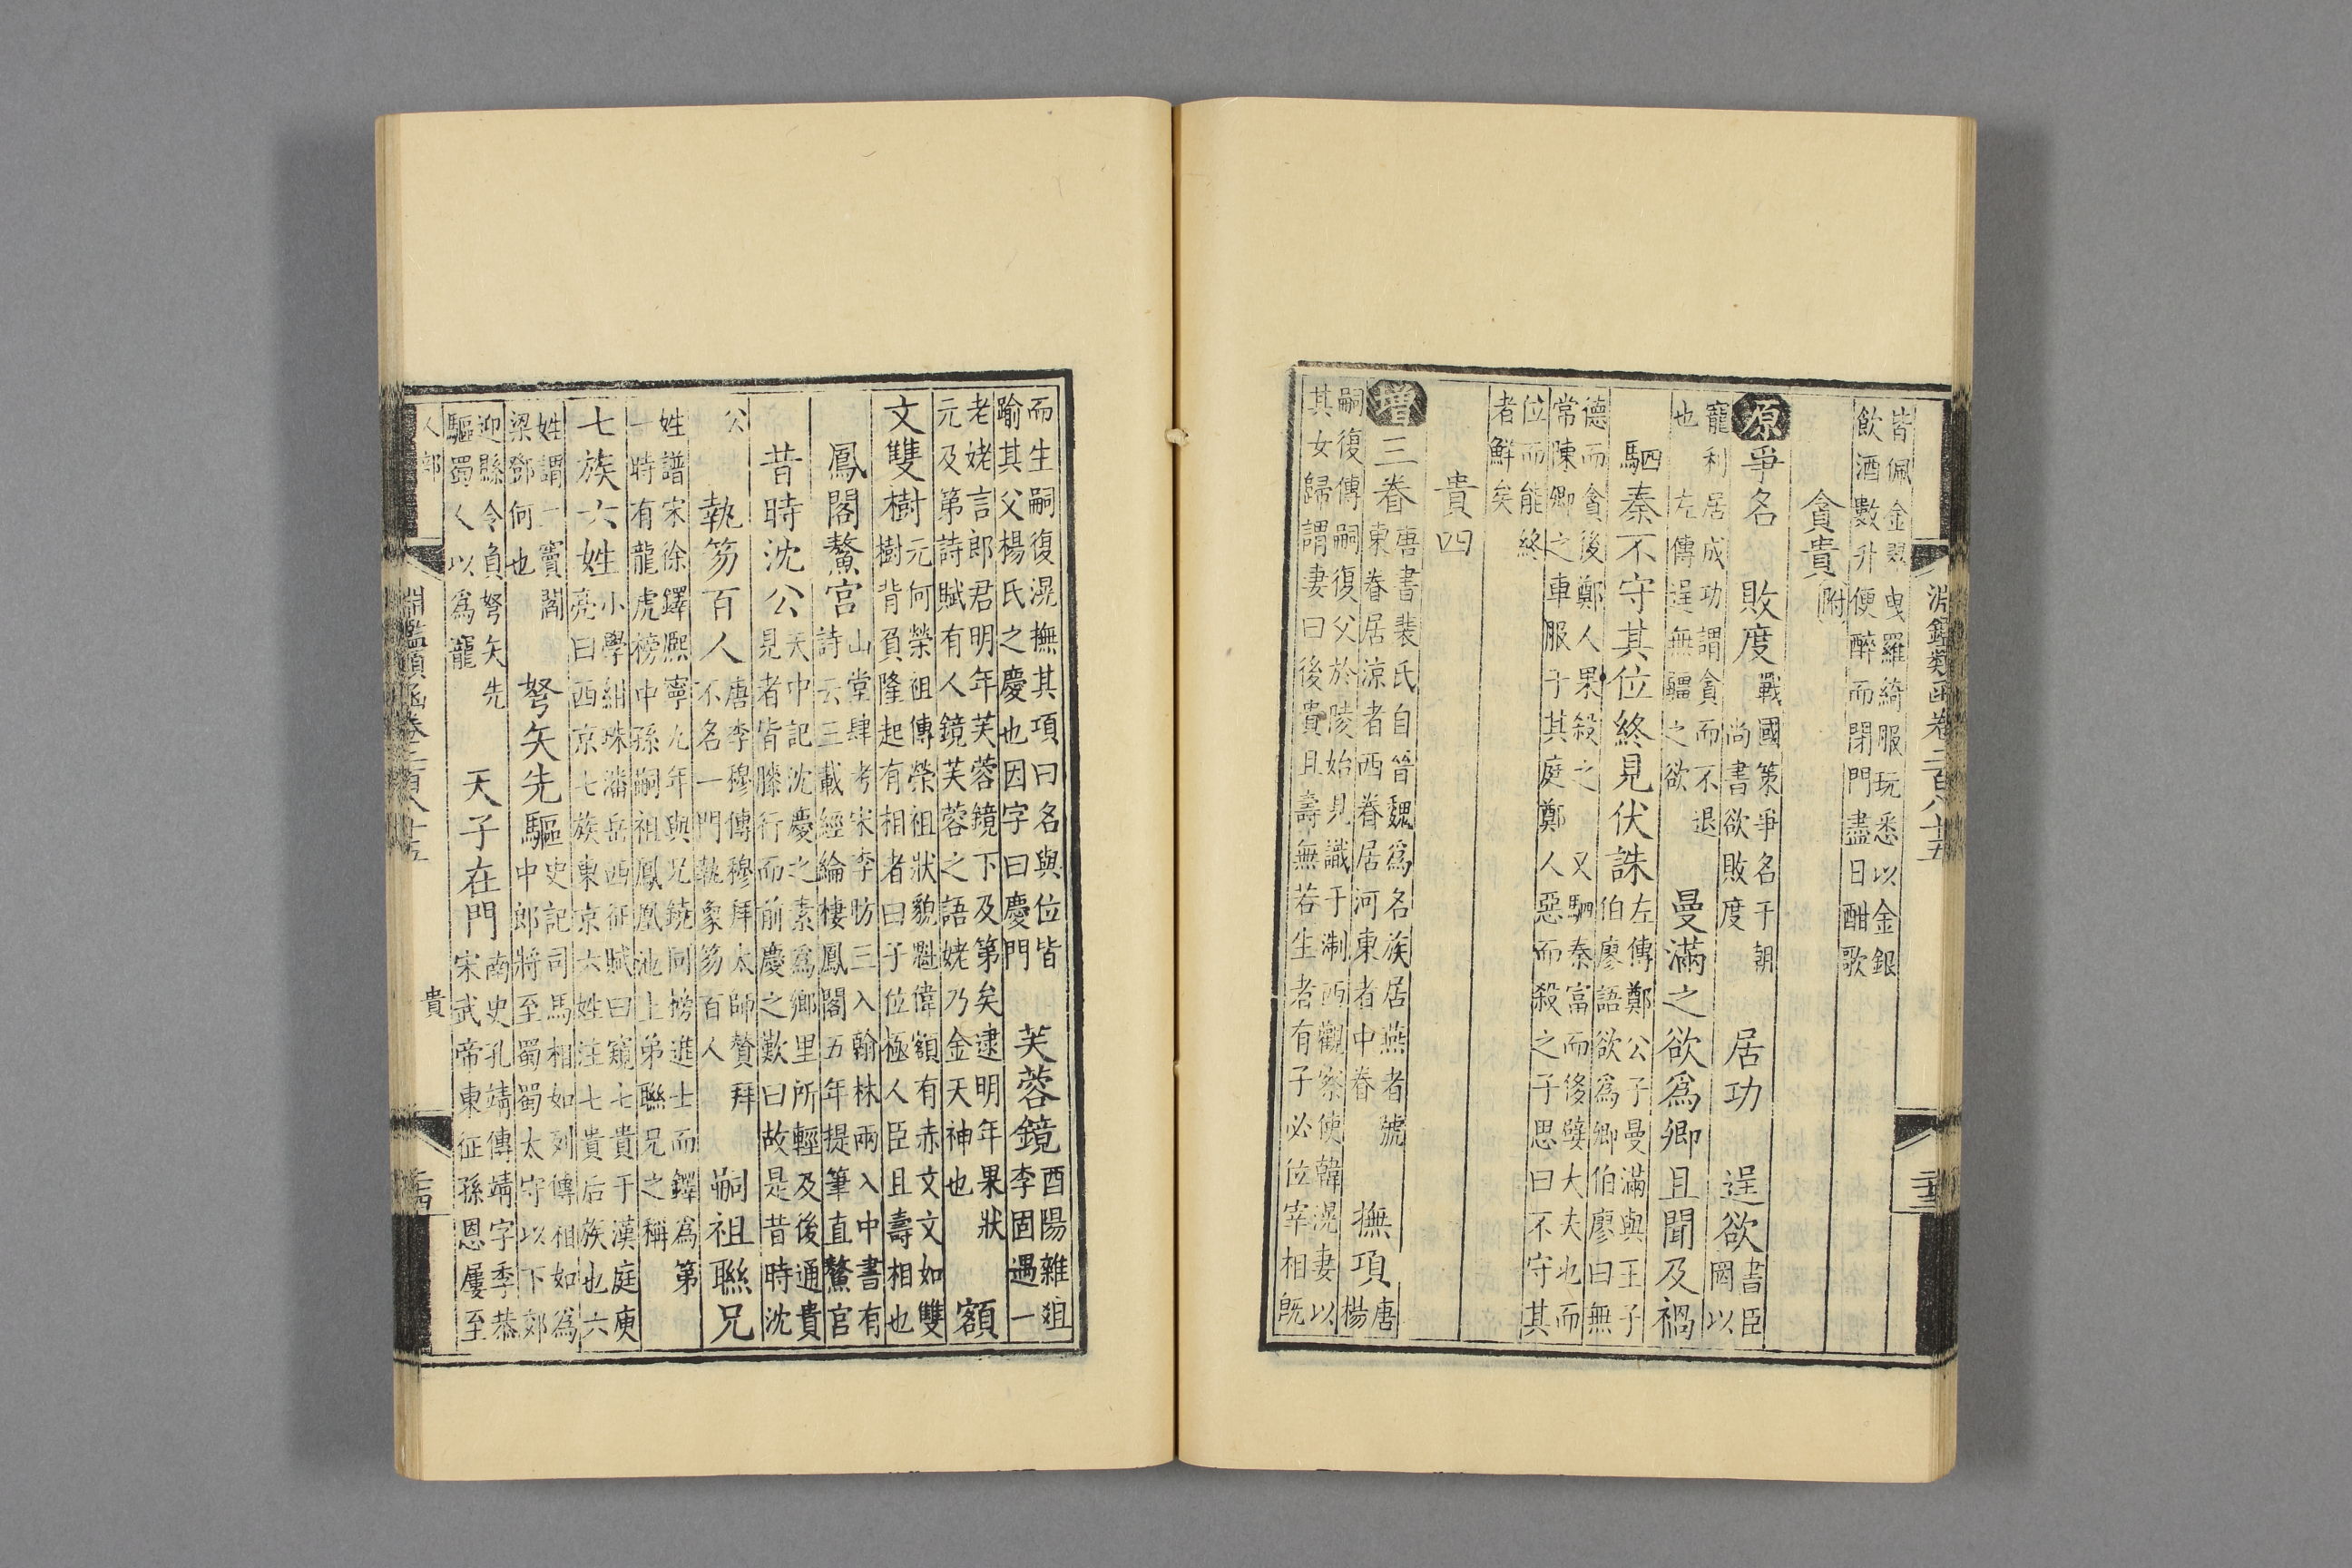 淵鑑類函卷二百八十五
二十三
皆佩金翠曳羅綺服玩悉以金銀
飲酒數升便醉而閉門盡日酣歌
貪貴附
原爭名 敗度 戰國策爭名于朝 尚書欲敗度 居功 逞欲 書臣罔以
寵利居成功謂貪而不退也 左傳逞無疆之欲 曼滿之欲爲卿且聞及禍
駟秦不守其位終見伏誅 左傳鄭公子曼滿與王子伯廖語欲爲卿伯廖曰無
德而貪後鄭人果殺之 又駟秦富而侈嬖大夫也而
常陳卿之車服于其庭鄭人惡而殺之子思曰不守其
位而能終者鮮矣
貴四
增三眷 唐書裴氏自晉魏爲名族居燕者號東眷居涼者西眷居河東者中眷 撫項 唐楊
嗣復傳嗣復父於陵始見識于浙西觀察使韓滉妻以
其女歸謂妻曰後貴且壽無若生者有子必位宰相旣
而生嗣復滉撫其項曰名與位皆
踰其父楊氏之慶也因字曰慶門 芙蓉鏡 酉陽雜俎李固遇一
老姥言郎君明年芙蓉鏡下及第矣逮明年果狀
元及第詩賦有人鏡芙蓉之語姥乃金天神也 額
文雙樹 元何榮祖傳榮祖狀貌魁偉額有赤文如雙
樹背負隆起有相者曰子位極人臣且壽相也
鳳閣鰲宮 山堂肆考宋李昉三入翰林兩入中書有
詩云三載經綸棲鳳閣五年提筆直鰲官
昔時沈公 天中記沈慶之素爲鄉里所輕及後通貴
見者皆膝行而前慶之歎曰故是昔時沈
公 執笏百人 唐李穆傳穆拜太師贊拜
不名一門執象笏百人 嗣祖聯兄
姓譜宋徐鐸熙寧九年與兄銳同搒進士而鐸爲第
一時有龍虎榜中孫嗣祖鳳凰池上弟聯兄之稱
七族六姓 小學紺珠潘岳西征賦曰窺七貴于漢庭庾
亮曰西京七族東京六姓注七貴后族也六
姓謂一竇閻梁鄧何也 弩矢先驅 史記司馬相如列傳相如爲
中郎將至蜀蜀太守以下郊
迎縣令負弩矢先驅蜀人以爲寵 天子在門 南史孔靖傳靖字季恭
宋武帝東征孫恩屢至
人部
淵鑑類函卷二百八十五
貴
二十四